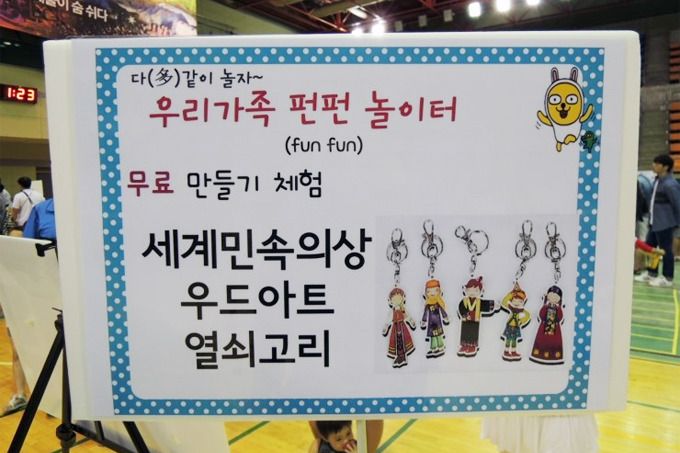 숨 쉬다
1:23
다(多)같이 놀자~
우리가족 펀펀 놀이터
(fun fun)
무료 만들기 체험
세계민속의상
우드아트
열쇠고리